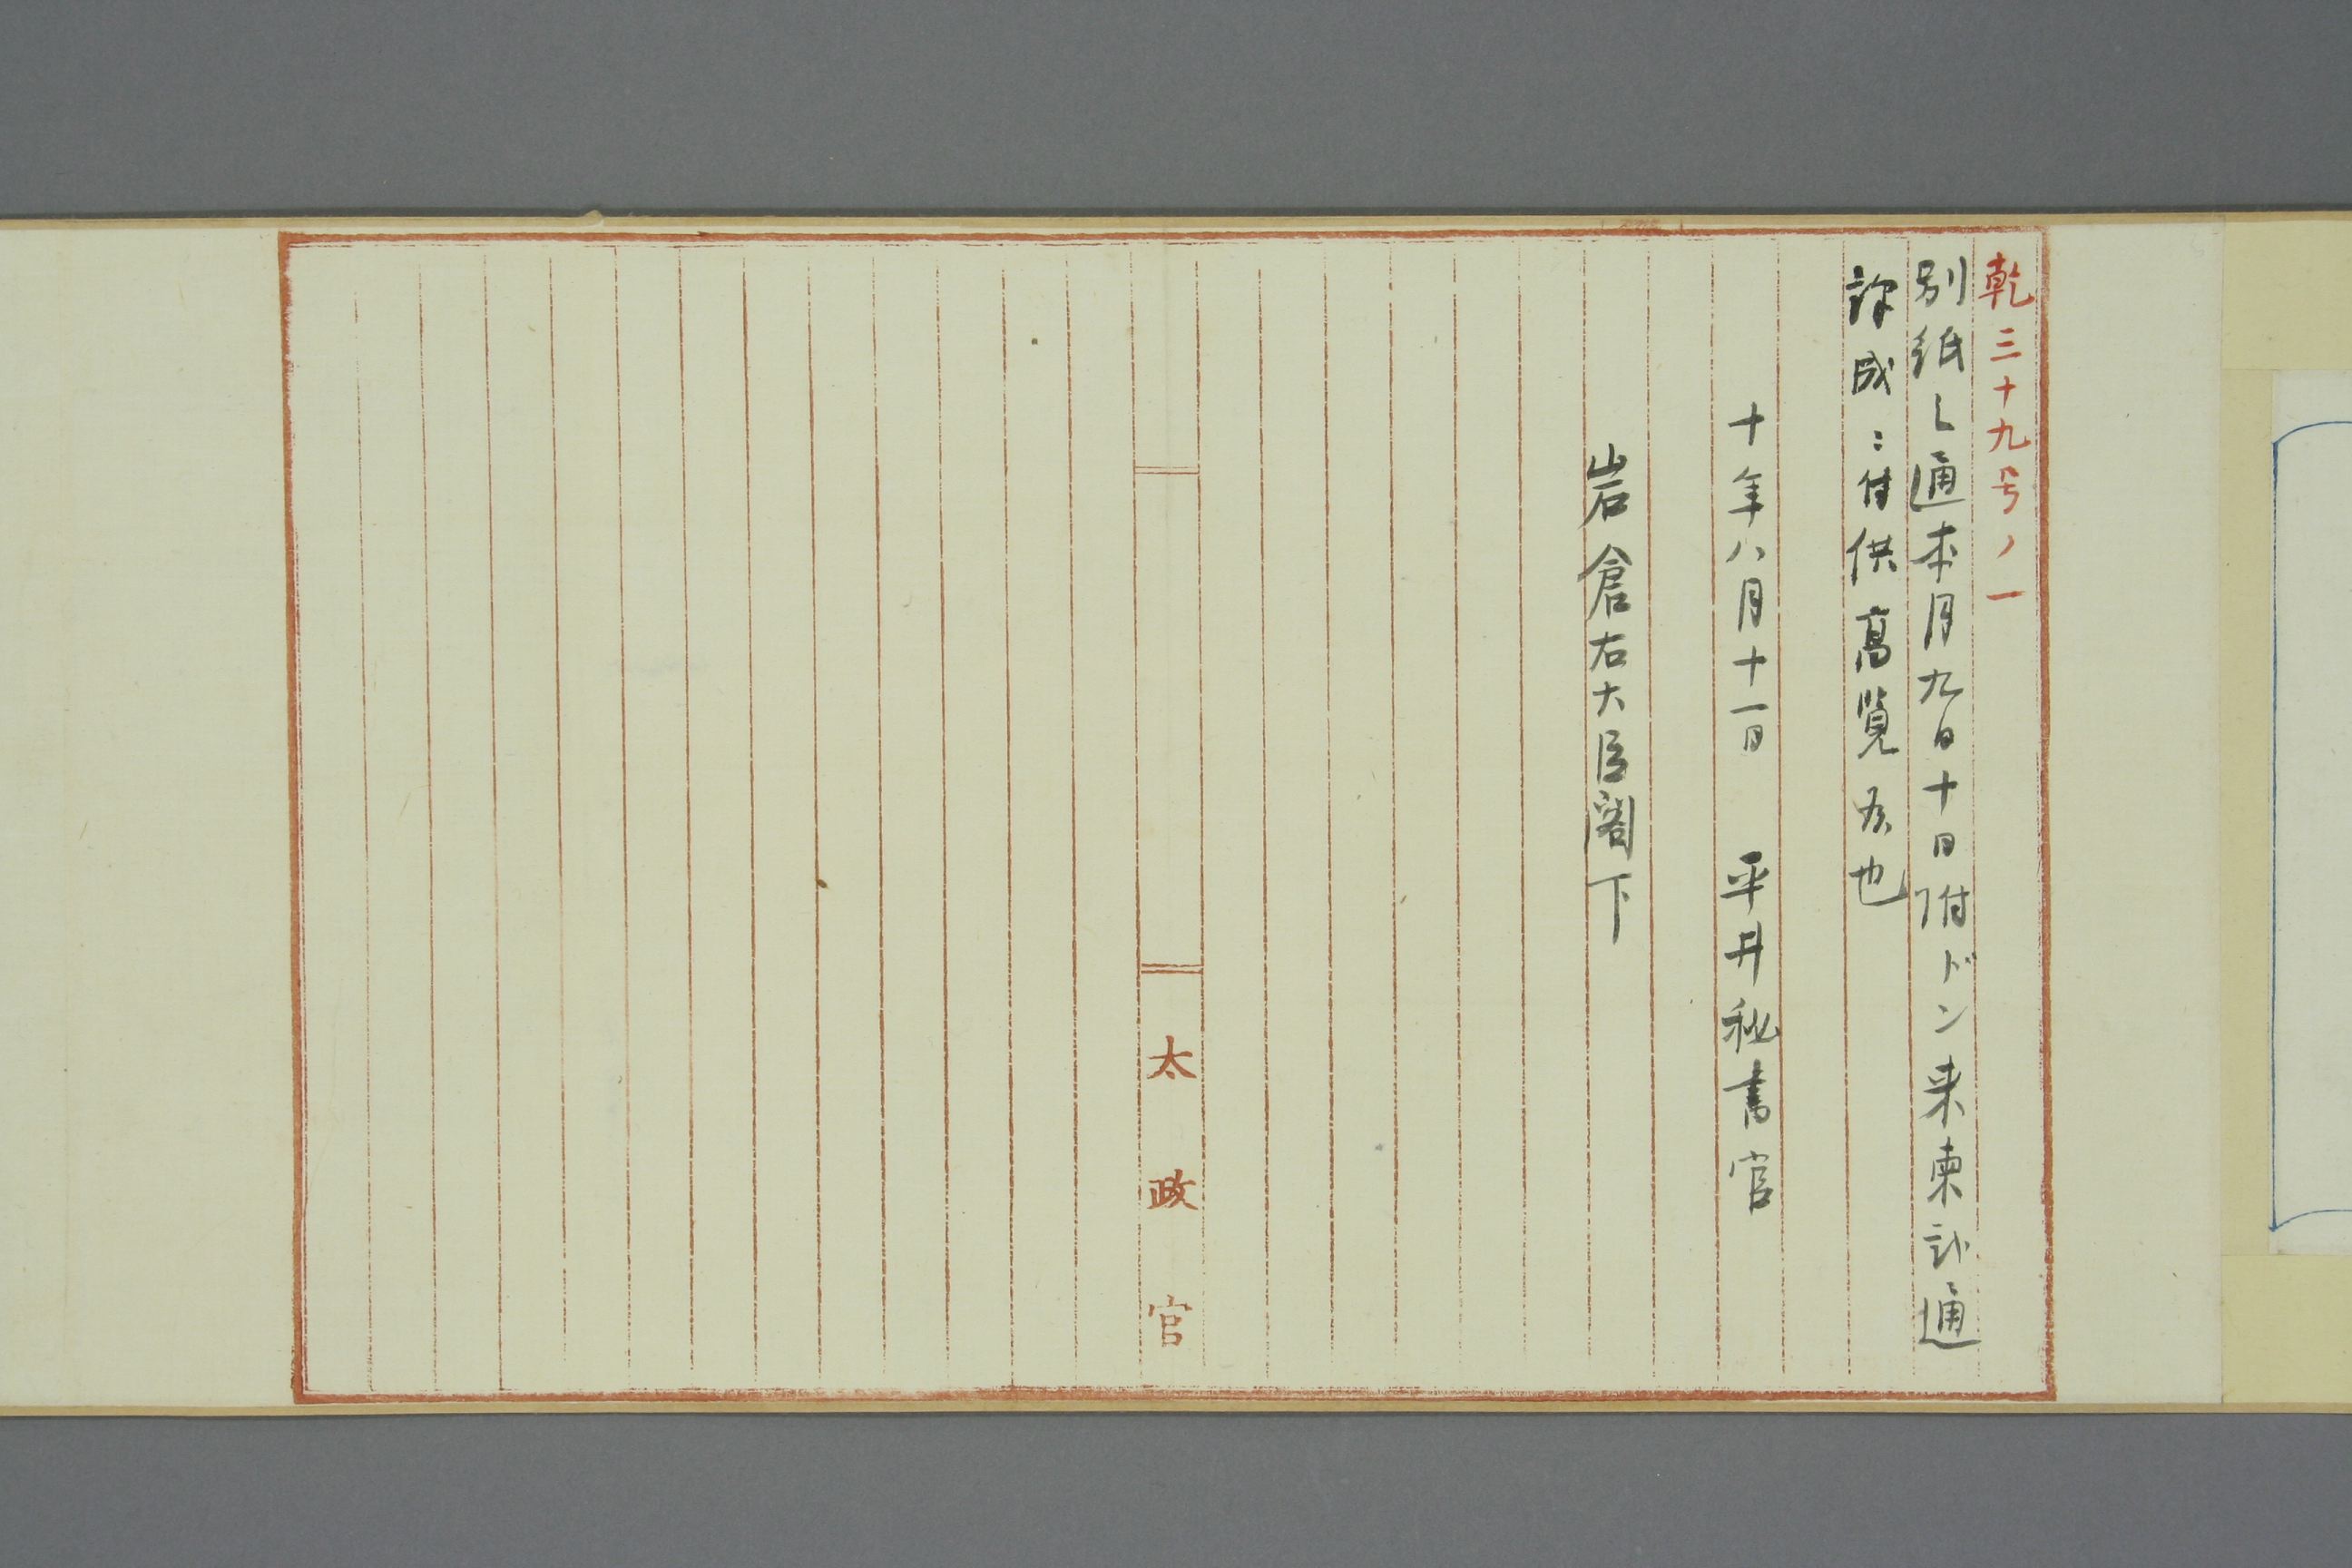 乾三十九号ノ一
別紙之通本月九日十日附ドン来柬訳通
訳成ニ付供高覧候也
十年八月十一日 平井秘書官
岩倉右大臣閣下
太政官